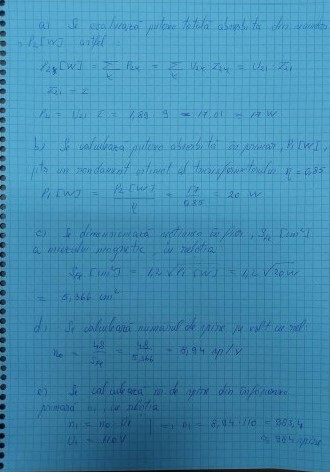 a) Se calculează puterea totală absorbită din secundar
P₂ [W] astfel:
P₂ [W] = Σ P₂ₖ = Σ U₂ₖ I₂ₖ = U₂₁ I₂₁
I₂₁ = I
P₂ = U₂₁ I = 1,89 · 9 = 17,01 ≈ 17 W
b) Se calculează puterea absorbită în primar, P₁ [W],
ptr un randament estimat al transformatorului η = 0,85
P₁ [W] = P₂ [W] / η = 17 / 0,85 = 20 W
c) Se dimensionează secțiunea în fier, S [cm²]
a miezului magnetic, cu relația
S [cm²] = 1,2 √P₁ [W] = 1,2 √20 W
= 5,366 cm²
d) Se calculează numărul de spire pe volt cu rel:
n₀ = 48 / S = 48 / 5,366 = 8,94 sp/V
e) Se calculează nr. de spire din înfășurarea
primară n₁, cu relația
n₁ = n₀ · U₁ | => n₁ = 8,94 · 110 = 983,4
U₁ = 110V | ≈ 984 spire